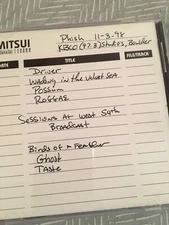 MITSUI
Phish 11-3-98
KBCO (97.3) Studios, Boulder
DATE
TITLE
FILE/TRACK
Driver
Wading in the Velvet Sea
Possum
Roggae
Sessions at West 54th
Broadcast
Birds of a Feather
Ghost
Taste